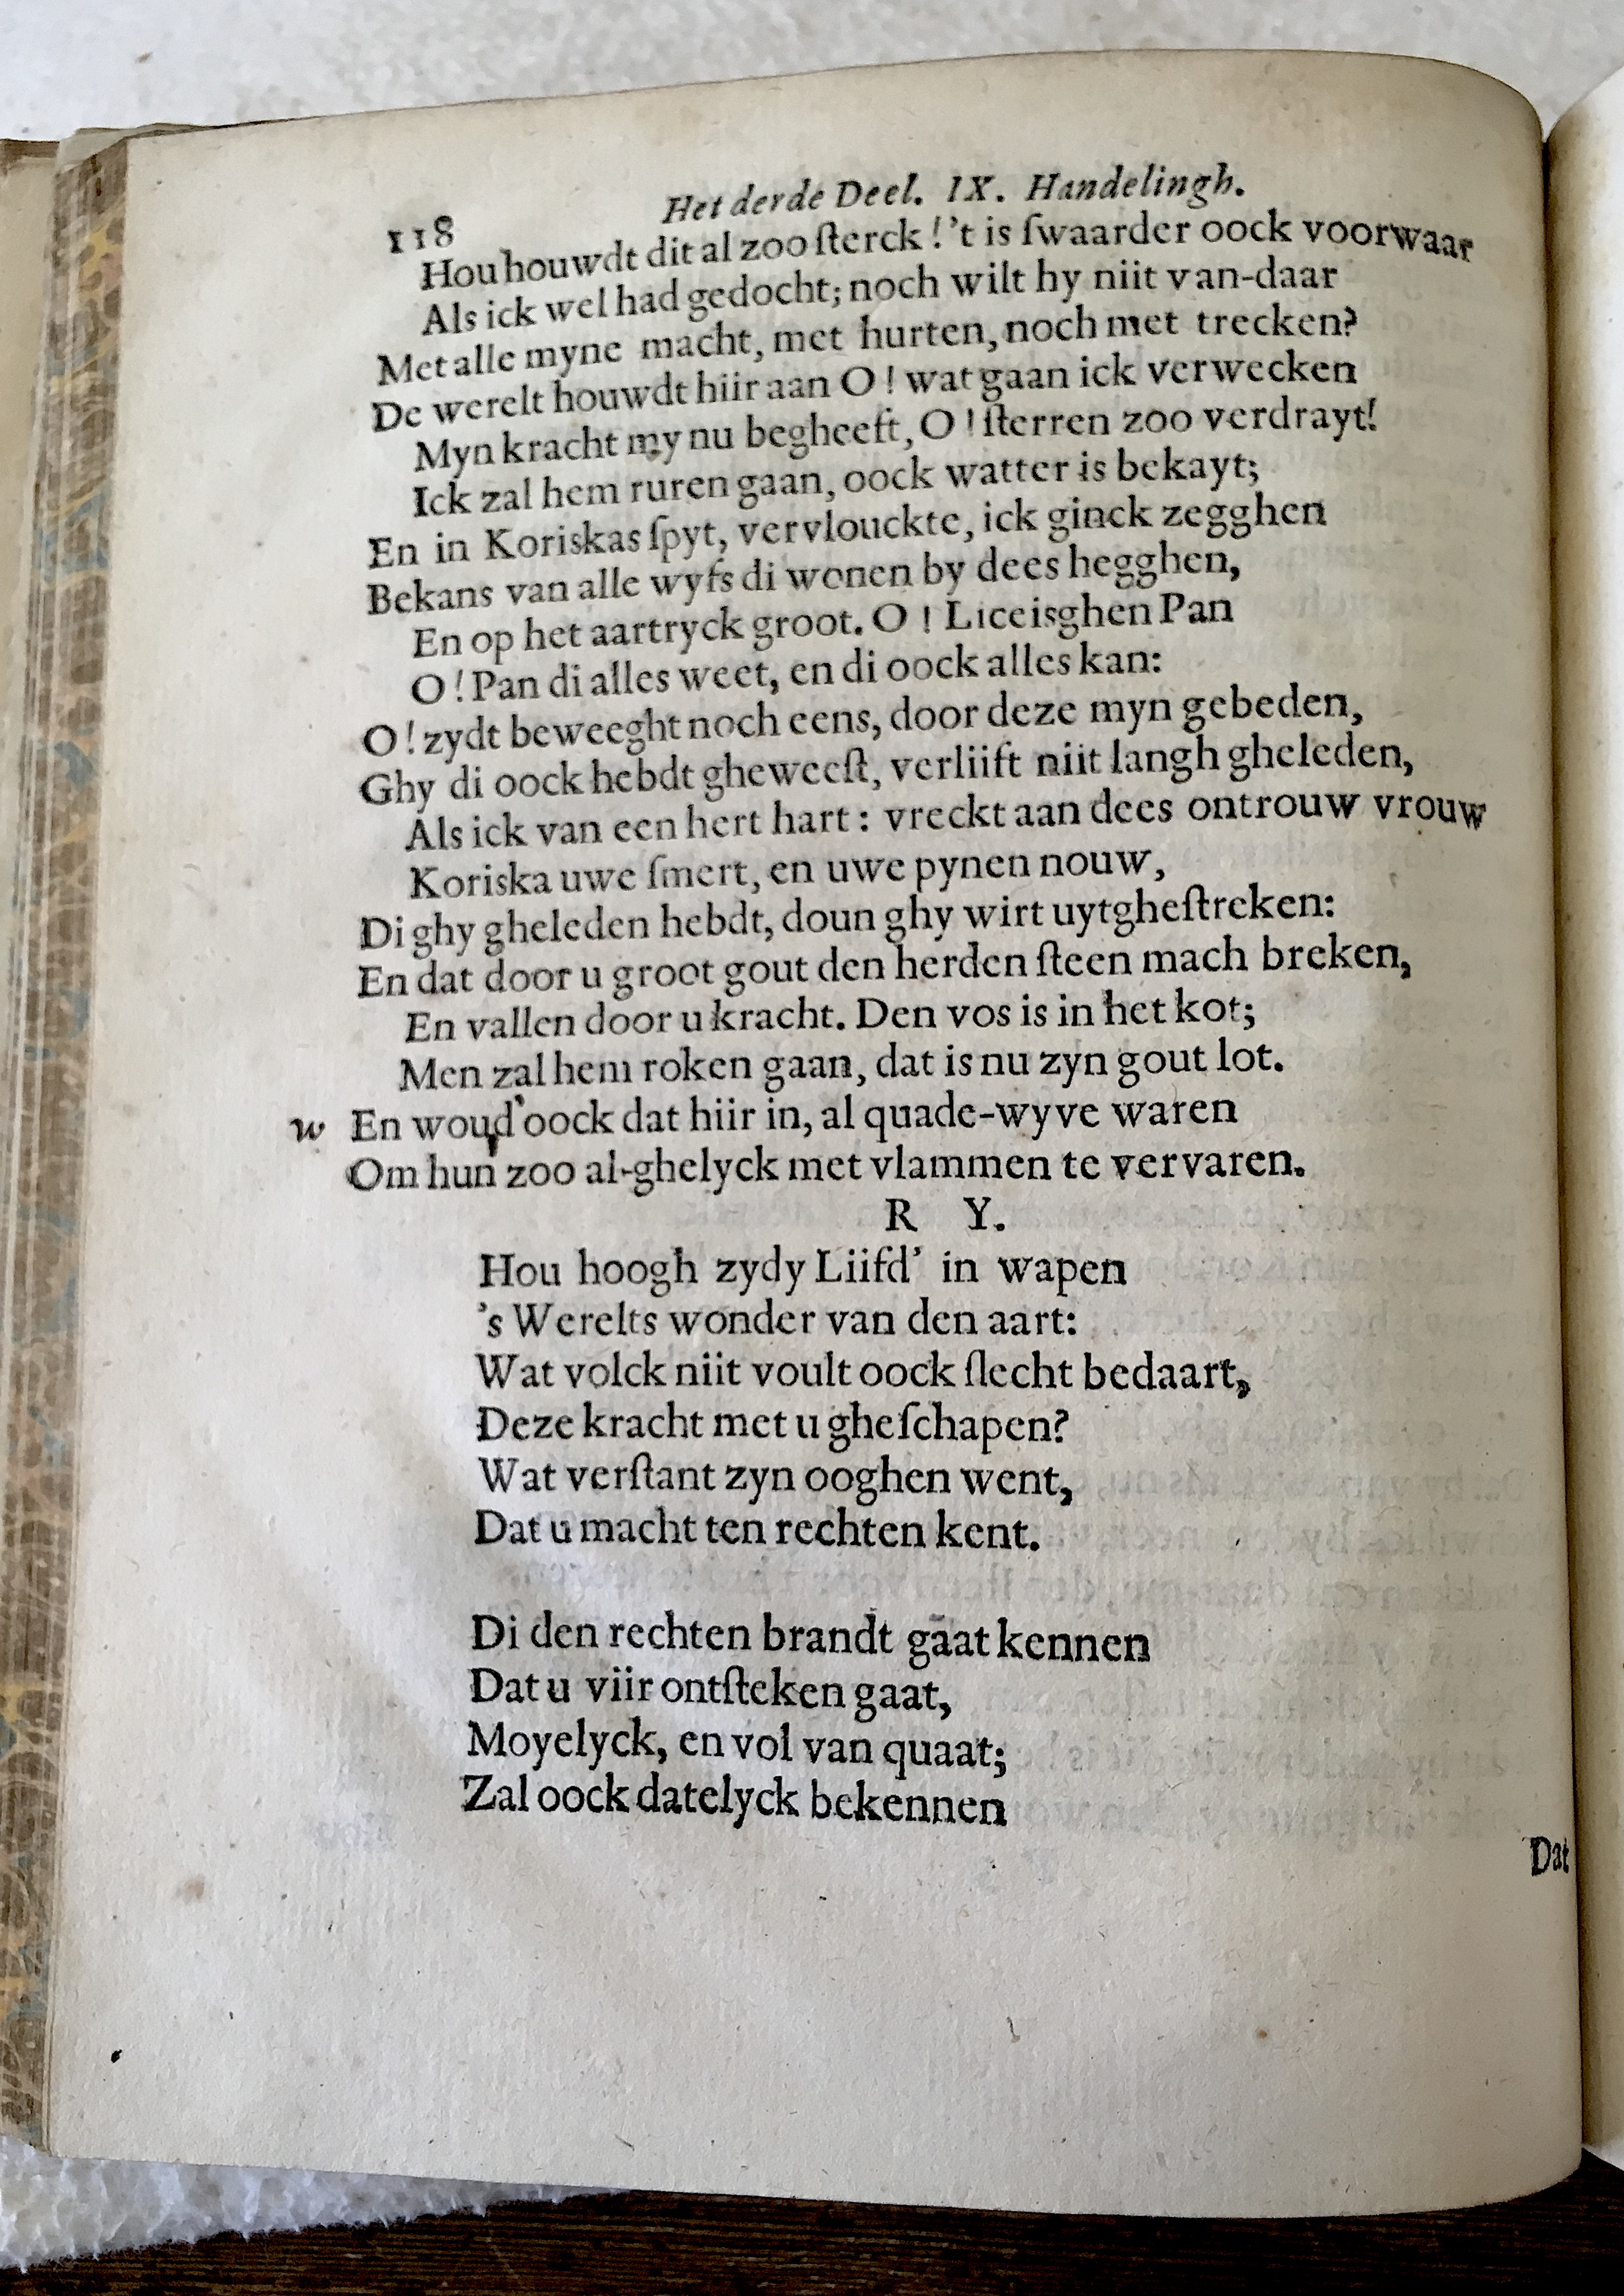 118 Het derde Deel. IX. Handelingh.
Hou houwdt dit al zoo ſterck! 't is ſwaarder oock voorwaar
Als ick wel had gedocht; noch wilt hy niit van-daar
Met alle myne macht, met hurten, noch met trecken?
De werelt houwdt hiir aan O! wat gaan ick verwecken
Myn kracht my nu begheeft, O! ſterren zoo verdrayt!
Ick zal hem ruren gaan, oock watter is bekayt;
En in Koriskas ſpyt, vervlouckte, ick ginck zegghen
Bekans van alle wyfs di wonen by dees hegghen,
En op het aartryck groot. O! Liceisghen Pan
O! Pan di alles weet, en di oock alles kan:
O! zydt beweeght noch eens, door deze myn gebeden,
Ghy di oock hebdt gheweeſt, verliift niit langh gheleden,
Als ick van een hert hart: vreckt aan dees ontrouw vrouw
Koriska uwe ſmert, en uwe pynen nouw,
Di ghy gheleden hebdt, doun ghy wirt uytgheſtreken:
En dat door u groot gout den herden ſteen mach breken,
En vallen door u kracht. Den vos is in het kot;
Men zal hem roken gaan, dat is nu zyn gout lot.
w En woud' oock dat hiir in, al quade-wyve waren
Om hun zoo al-ghelyck met vlammen te vervaren.
R Y.
Hou hoogh zydy Liifd' in wapen
's Werelts wonder van den aart:
Wat volck niit voult oock ſlecht bedaart,
Deze kracht met u gheſchapen?
Wat verſtant zyn ooghen went,
Dat u macht ten rechten kent.
Di den rechten brandt gaat kennen
Dat u viir ontſteken gaat,
Moyelyck, en vol van quaat;
Zal oock datelyck bekennen
Dat